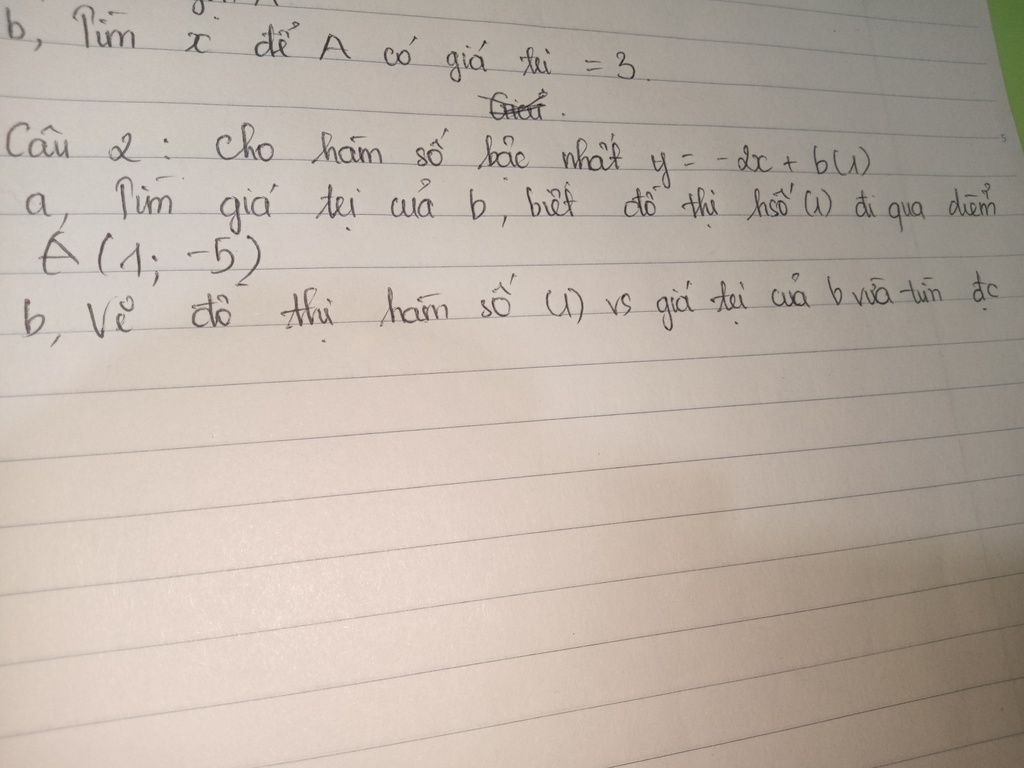 b, Tìm x để A có giá trị = 3.
Câu 2 : Cho hàm số bậc nhất y = -2x + b (1)
a, Tìm giá trị của b, biết đồ thị hsố (1) đi qua điểm
A (1; -5)
b, Vẽ đồ thị hàm số (1) vs giá trị của b vừa tìm đc